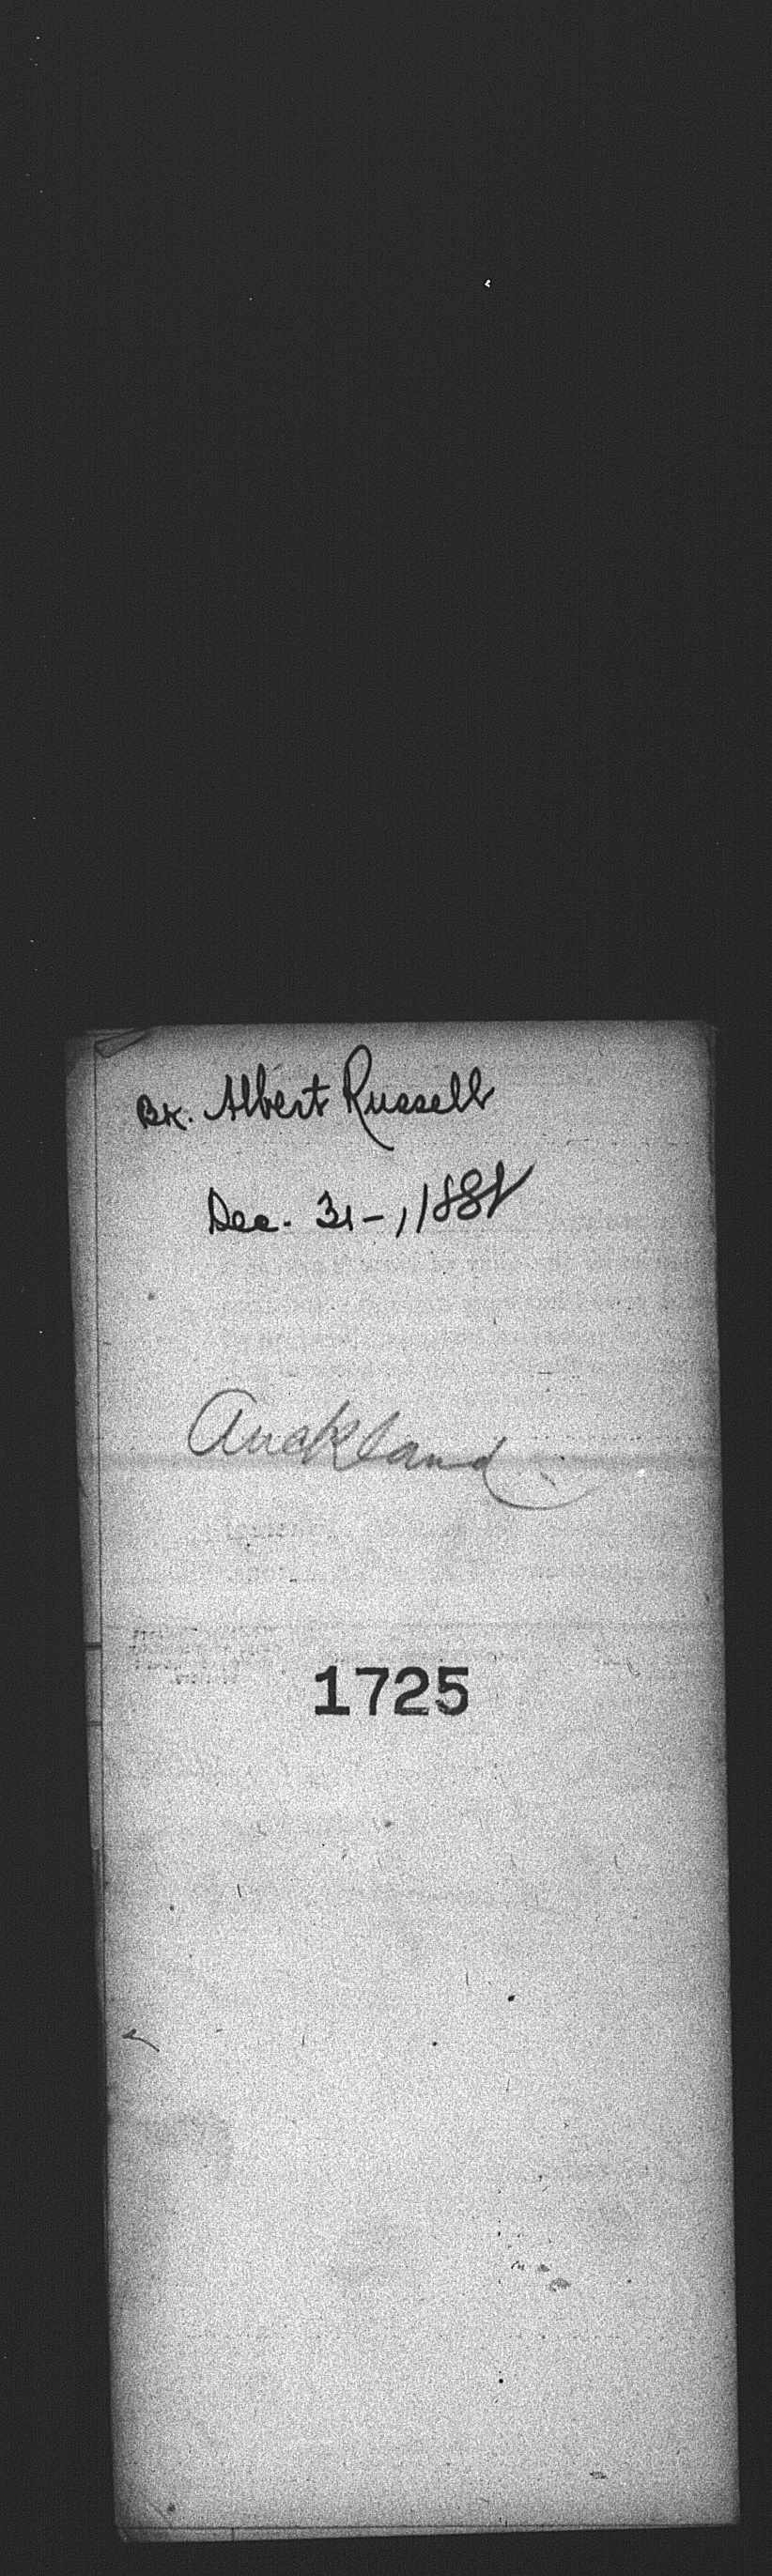 Bk. Albert Russell
Dec. 31-, 1888
Auckland
1725